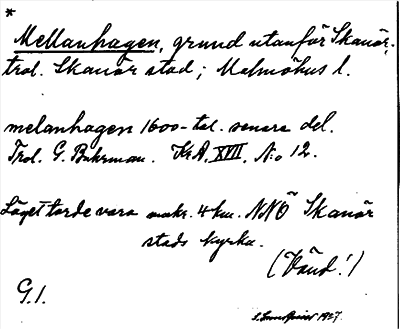 *
Mellanhagen, grund utanför Skanör,
trol. Skanör stad; Malmöhus l.
melanhagen 1600-tal. senare del.
Trol. G. Buhrman. KrA, XVII, N:o 12.
Läget torde vara omkr. 4 km. NNÖ Skanör
stads kyrka.
(Vänd!)
G. I.
1927.